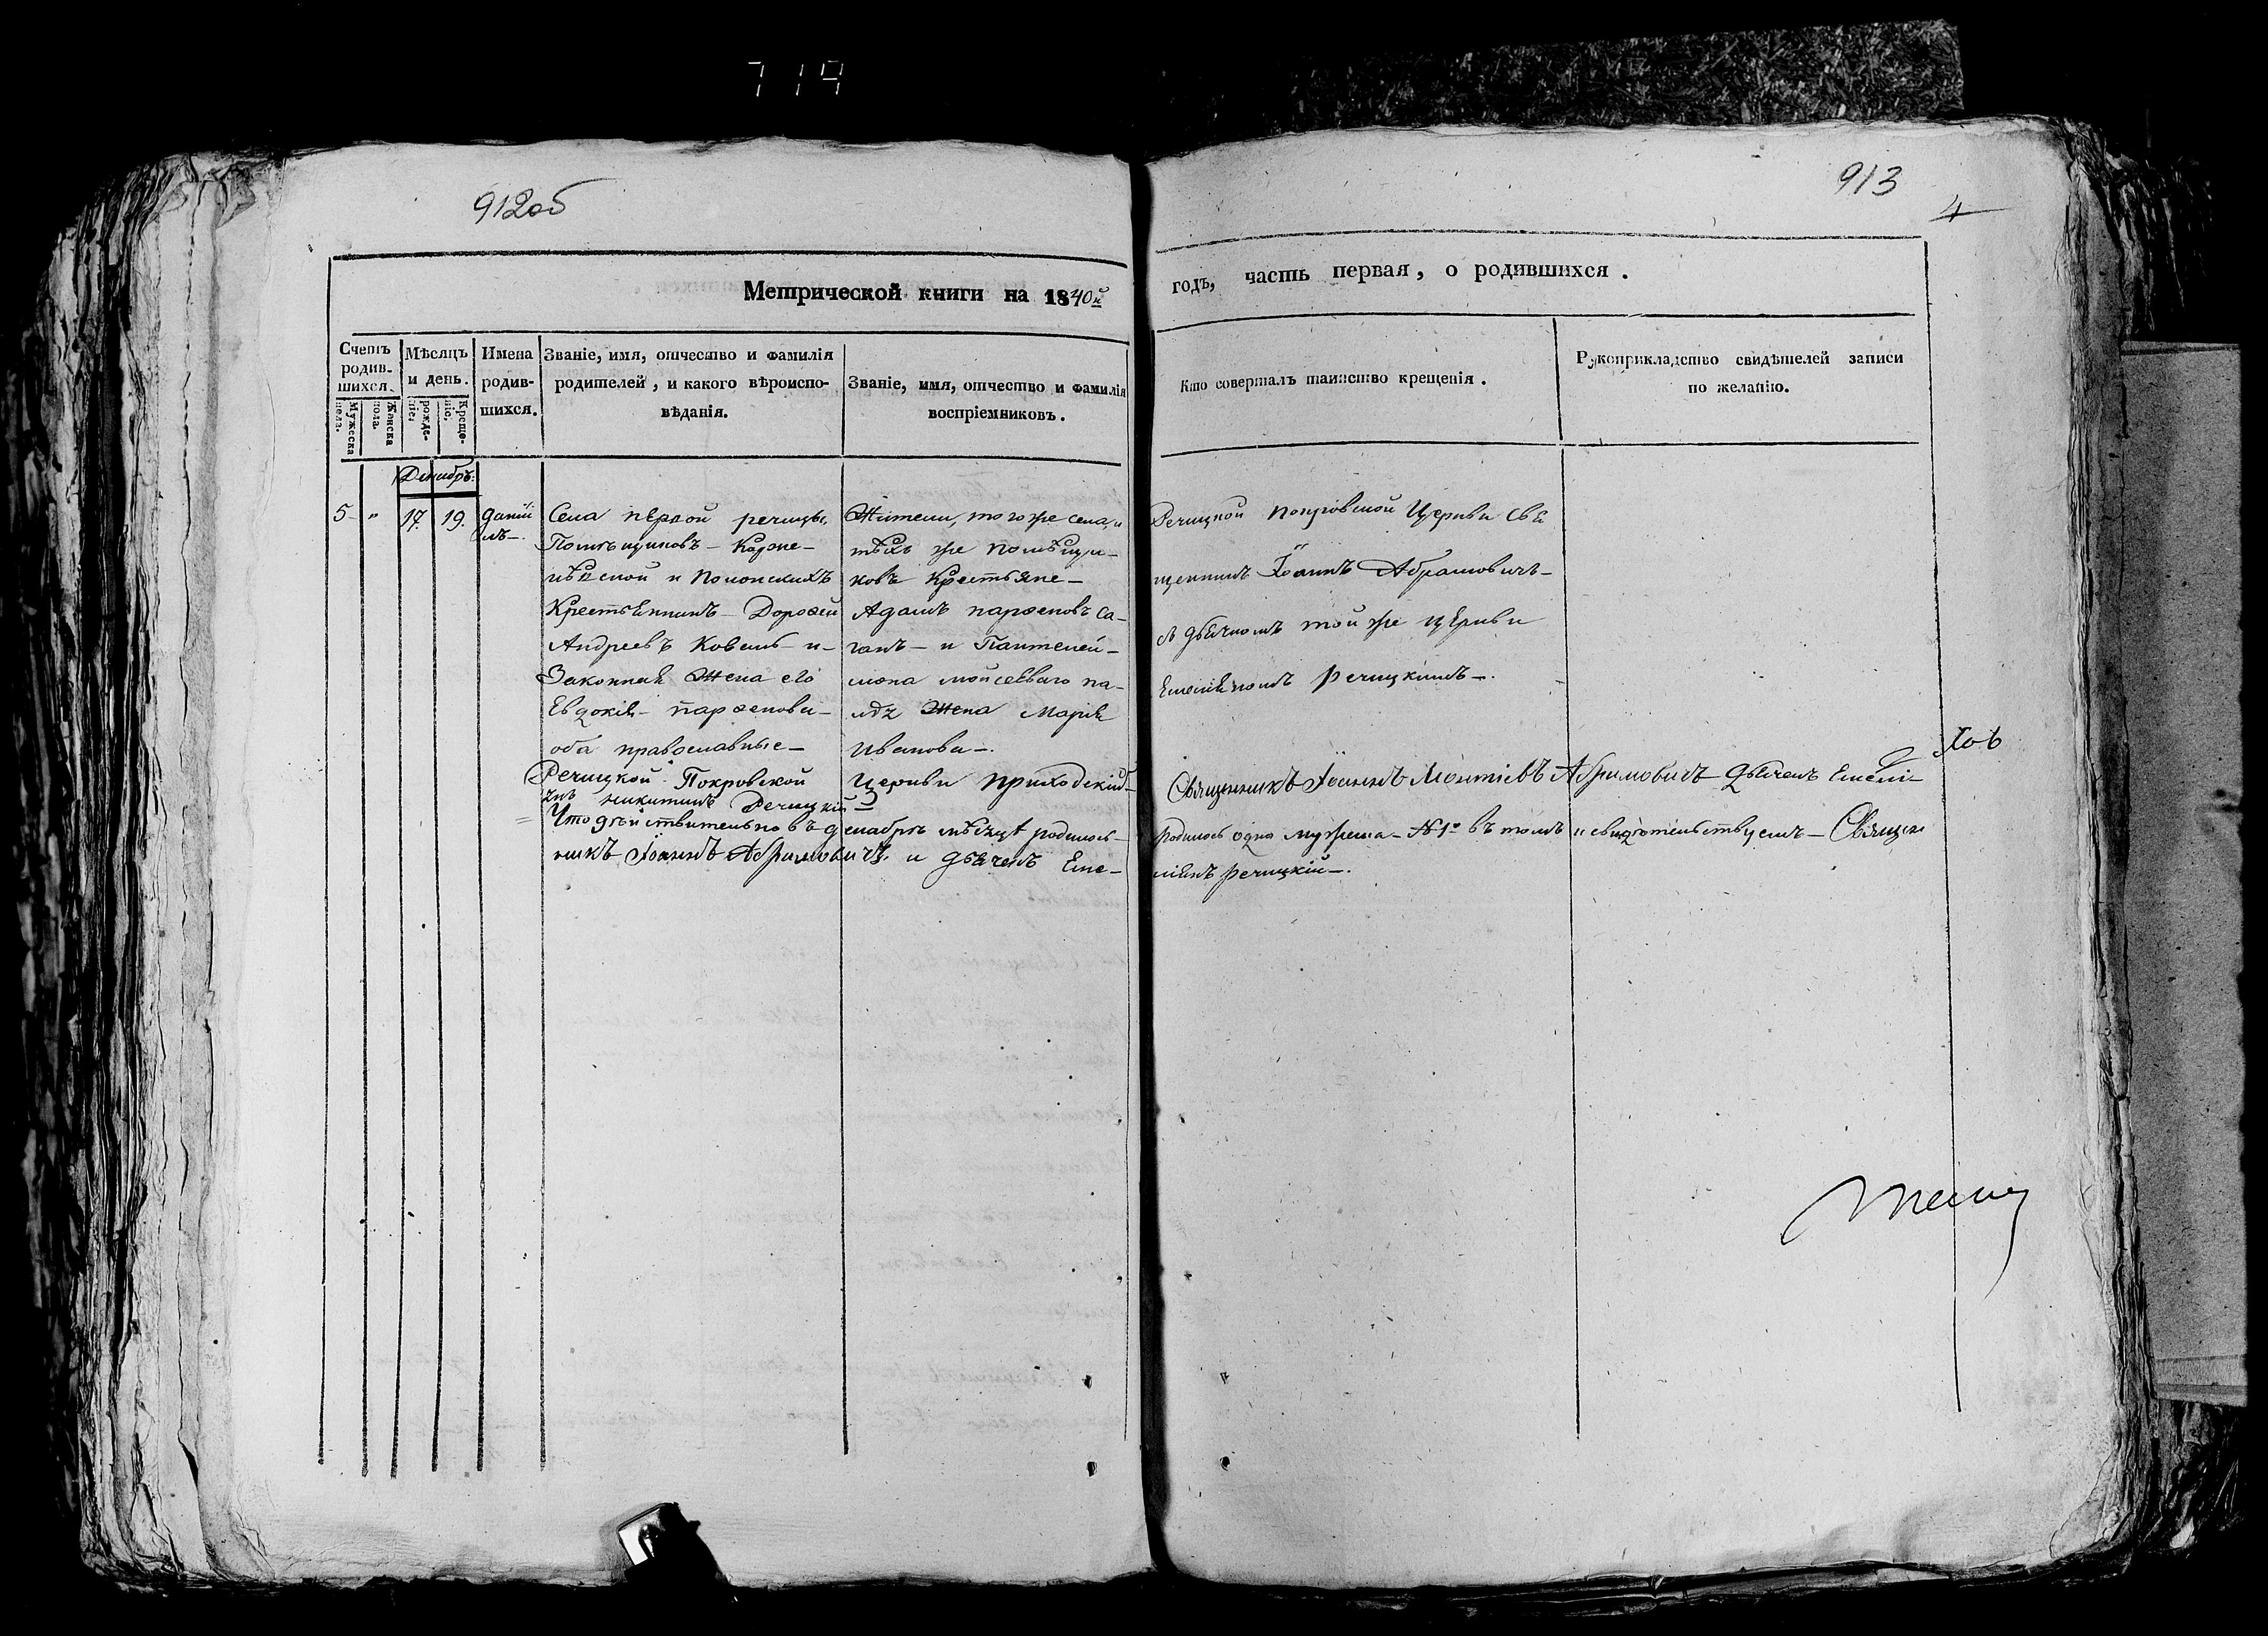 714
912об
913
4
Метрической книги на 1840й
годъ, часть первая, о родившихся.
Счетъ родившихся.
Мужеска пола.
Женска пола.
Мѣсяцъ и день.
рожденіе.
Крещеніе.
Имена родившихся.
Званіе, имя, отчество и фамилія
родителей, и какого вѣроиспо-
вѣданія.
Званіе, имя, отчество и фамилія
воспріемниковъ.
Кто совершалъ таинство крещенія.
Рукоприкладство свидѣтелей записи
по желанію.
Декабрь
5 " 17. 19.
Даніи
лъ
Села первой речицы,
Помѣщиковъ
и Полонскихъ
Крестьянинъ Дорофей
Андреевъ Ковель и
Законная Жена его
Евдокія Парѳенова
оба православные
Жители, того же села, и
тѣхъ же помѣщи-
ковъ Крестьяне
Адамъ Парѳеновъ Са-
ганъ и Пантелей-
мона Мойсееваго
Жена Марія
Иванова
Речицкой Покровской Церкви Свя
щенникъ Іоаннъ Абрамовичъ
съ дьячкомъ той же церкви
Емеліяномъ Речицкимъ
Речицкой Покровской Церкви Приходскій
Священникъ Іоаннъ Абрамовичъ Дьячекъ Емелі-
никитинъ Речицкій
Что дѣйствительно въ декабрѣ мѣсяцѣ родилось
родилось одно мужеска №1о въ томъ и свидѣтельствуемъ Священ
никъ Іоаннъ Абрамовичъ и дьячекъ Еме-
ліянъ Речицкій